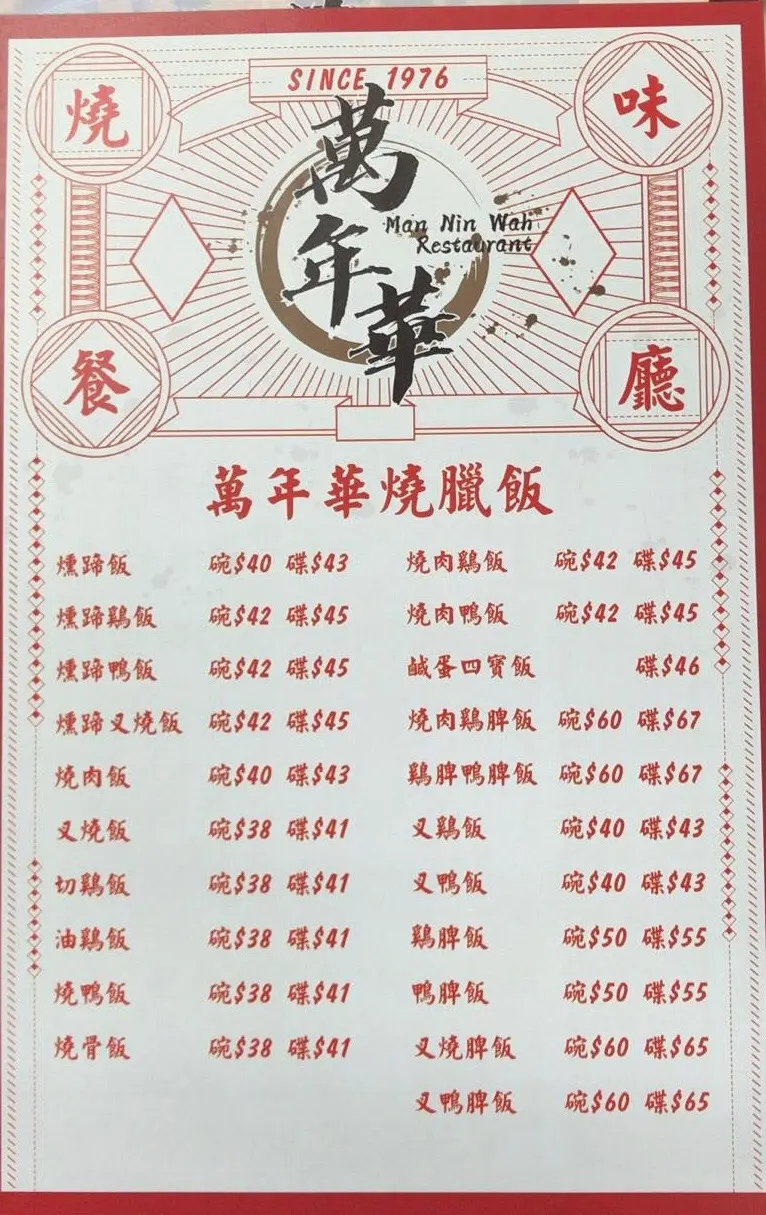 SINCE 1976
燒味
餐廳
萬年華
Man Nin Wah
Restaurant
萬年華燒臘飯
燻蹄飯 碗$40 碟$43
燻蹄鷄飯 碗$42 碟$45
燻蹄鴨飯 碗$42 碟$45
燻蹄叉燒飯 碗$42 碟$45
燒肉飯 碗$40 碟$43
叉燒飯 碗$38 碟$41
切鷄飯 碗$38 碟$41
油鷄飯 碗$38 碟$41
燒鴨飯 碗$38 碟$41
燒骨飯 碗$38 碟$41
燒肉鷄飯 碗$42 碟$45
燒肉鴨飯 碗$42 碟$45
鹹蛋四寶飯 碟$46
燒肉鷄脾飯 碗$60 碟$67
鷄脾鴨脾飯 碗$60 碟$67
叉鷄飯 碗$40 碟$43
叉鴨飯 碗$40 碟$43
鷄脾飯 碗$50 碟$55
鴨脾飯 碗$50 碟$55
叉燒脾飯 碗$60 碟$65
叉鴨脾飯 碗$60 碟$65